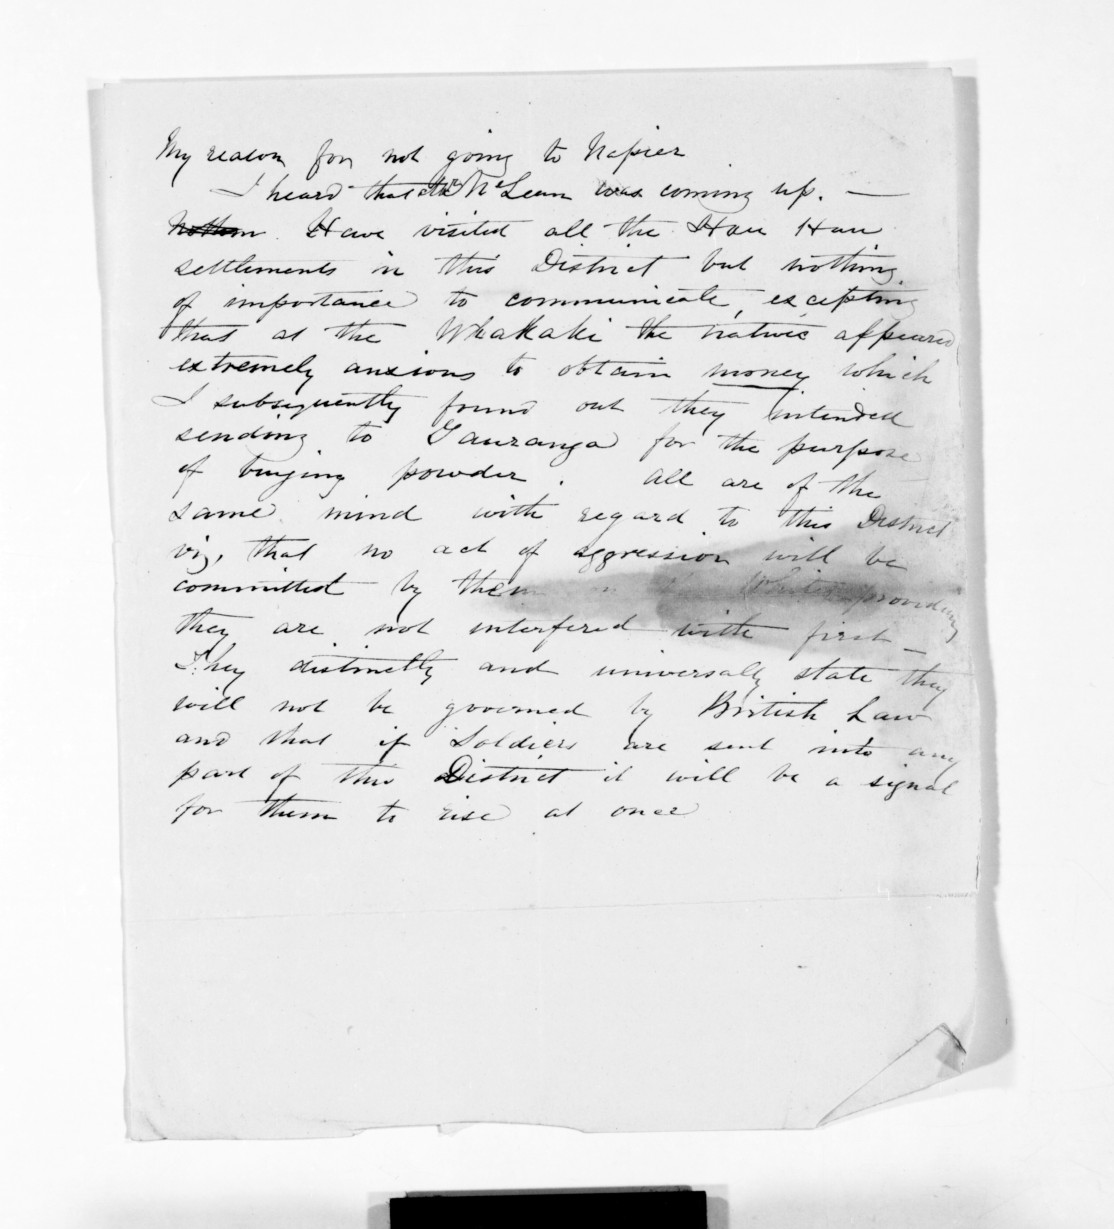 My reason for not going to Napier
I heard that Mr McLean was coming up. —
Have visited all the Hau Hau
settlements in this District but nothing
of importance to communicate, excepting
that at the Whakaki the natives appeared
extremely anxious to obtain money which
I subsequently found out they intended
sending to Tauranga for the purpose
of buying powder. All are of the
same mind with regard to this District
viz, that no act of aggression will be
committed by them Whites providing
they are not interfered with first —
They distinctly and universally state they
will not be governed by British Law
and that if Soldiers are sent into any
part of this District it will be a signal
for them to rise at once